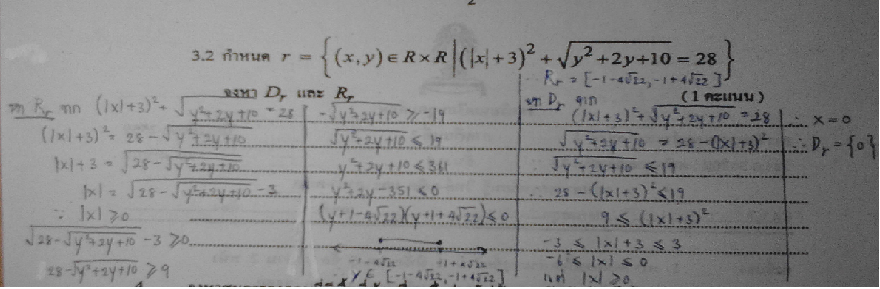 2
3.2 กำหนด r = { (x, y) ∈ R × R | (|x| + 3)² + √(y² + 2y + 10) = 28 }
จงหา D_r และ R_r
(1 คะแนน)
R_r = [-1-4√22, -1+4√22]
หา R_r จาก (|x|+3)² + √(y²+2y+10) = 28
(|x|+3)² = 28 - √(y²+2y+10)
|x|+3 = √(28 - √(y²+2y+10))
|x| = √(28 - √(y²+2y+10)) - 3
∵ |x| ≥ 0
√(28 - √(y²+2y+10)) - 3 ≥ 0
28 - √(y²+2y+10) ≥ 9
-√(y²+2y+10) ≥ -19
√(y²+2y+10) ≤ 19
y²+2y+10 ≤ 361
y²+2y-351 ≤ 0
(y+1-4√22)(y+1+4√22) ≤ 0
-1-4√22 -1+4√22
∴ y ∈ [-1-4√22, -1+4√22]
หา D_r จาก
(|x|+3)² + √(y²+2y+10) = 28
√(y²+2y+10) = 28 - (|x|+3)²
√(y²+2y+10) ≤ 19
28 - (|x|+3)² ≤ 19
9 ≤ (|x|+3)²
-3 ≤ |x|+3 ≤ 3
-6 ≤ |x| ≤ 0
แต่ |x| ≥ 0
∴ x = 0
∴ D_r = {0}